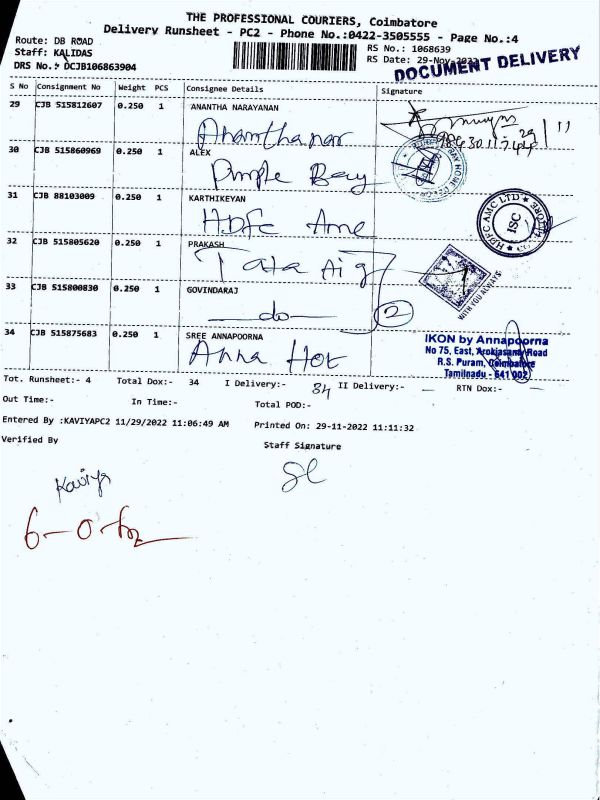 THE PROFESSIONAL COURIERS, Coimbatore
Delivery Runsheet - PC2 - Phone No.:0422-3505555 - Page No.:4
Route: DB ROAD
Staff: KALIDAS
DRS No.: DCJB106863904
RS No.: 1068639
RS Date: 29-Nov-2022
DOCUMENT DELIVERY
S No Consignment No Weight PCS Consignee Details Signature
29 CJB 515812607 0.250 1 ANANTHA NARAYANAN
29/11
30 CJB 515860969 0.250 1 ALEX
Purple Bay
31 CJB 88103009 0.250 1 KARTHIKEYAN
Hdfc Amc
HDFC AMC LTD
ISC
32 CJB 515805620 0.250 1 PRAKASH
Tata Aig
WITH YOU ALWAYS
33 CJB 515800830 0.250 1 GOVINDARAJ
—do— 2
34 CJB 515875683 0.250 1 SREE ANNAPOORNA
Anna Hot
IKON by Annapoorna
No 75, East, Arokiasamy Road
R.S. Puram, Coimbatore
Tamilnadu - 641 002
Tot. Runsheet:- 4 Total Dox:- 34 I Delivery:- 34 II Delivery:- — RTN Dox:- —
Out Time:- In Time:- Total POD:-
Entered By :KAVIYAPC2 11/29/2022 11:06:49 AM Printed On: 29-11-2022 11:11:32
Verified By Staff Signature
Kaviya